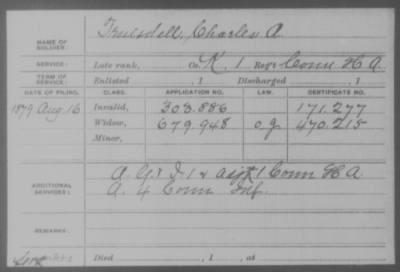 NAME OF SOLDIER: Truesdell, Charles A.
SERVICE: Late rank, Co. K, 1 Reg't Conn H A.
TERM OF SERVICE: Enlisted , 1 Discharged , 1
DATE OF FILING. CLASS. APPLICATION NO. LAW. CERTIFICATE NO.
1879 Aug. 16 Invalid, 303.886 171.277
Widow, 679.948 o.g. 470.215
Minor,
ADDITIONAL SERVICES: A. G & I 1 Conn H A.
A. 4 Conn Inf.
REMARKS:
Died , 1 , at